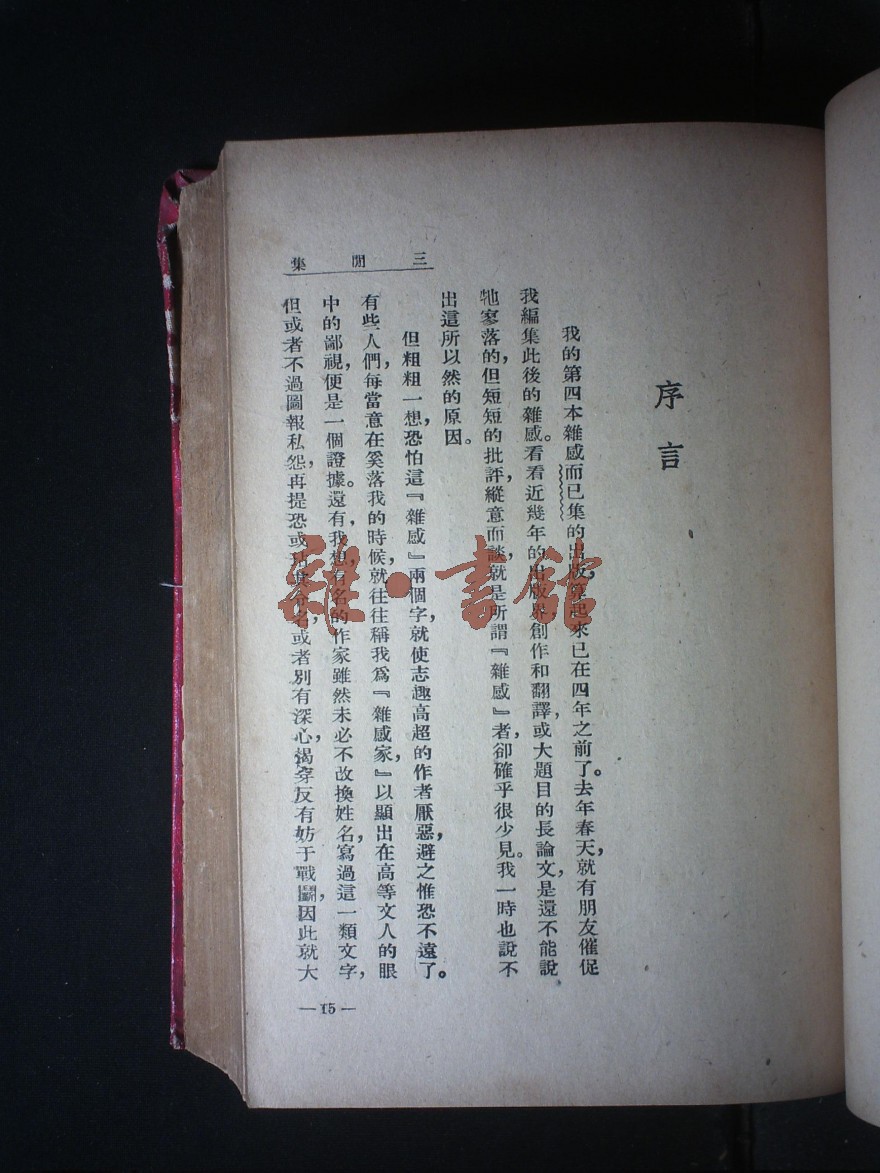 三閒集
序言
我的第四本雜感而已集的出版，算起來已在四年之前了。去年春天，就有朋友催促
我編集此後的雜感。看看近幾年的出版界，創作和翻譯，或大題目的長論文，是還不能說
牠寥落的，但短短的批評，縱意而談，就是所謂『雜感』者，卻確乎很少見。我一時也說不
出這所以然的原因。
但粗粗一想，恐怕這『雜感』兩個字，就使志趣高超的作者厭惡，避之惟恐不遠了。
有些人們，每當意在奚落我的時候，就往往稱我爲『雜感家』，以顯出在高等文人的眼
中的鄙視，便是一個證據。還有，我想，有名的作家雖然未必不改換姓名，寫過這一類文字，
但或者不過圖報私怨，再提恐或名，或者別有深心，揭穿反有妨于戰鬭，因此就大
—15—
雜·書館